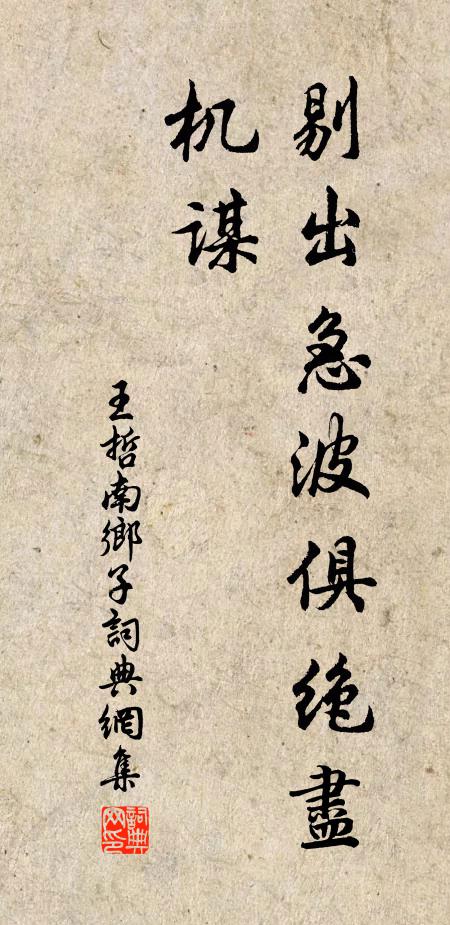 剔出急波俱绝盡
机谋
王哲南鄉子詞典網集
詞典网印